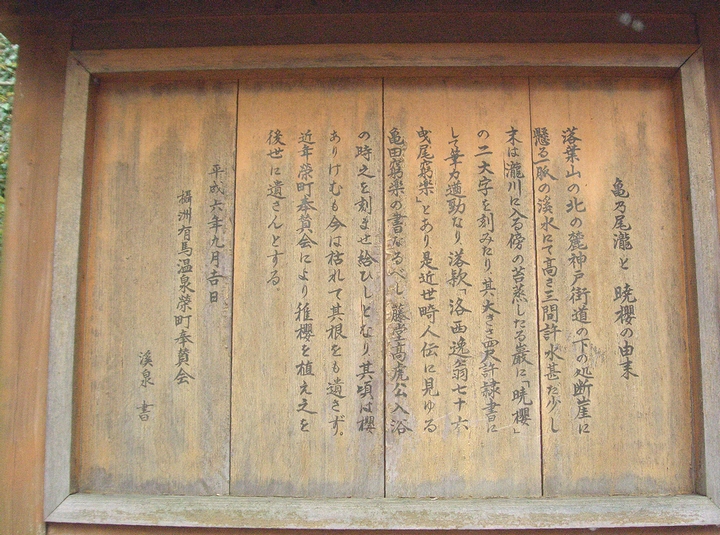 亀乃尾瀧と 暁櫻の由来
落葉山の北の麓神戸街道の下の処断崖に
懸る一脈の渓水にて高さ三間許水甚だ少し
末は瀧川に入る傍の苔蒸したる巖に「暁櫻」
の二大字を刻みたり、其大きさ四尺許隷書に
して筆力遒勁なり落款「洛西逸翁七十六
曳尾窮楽」とあり是近世畸人伝に見ゆる
亀田窮楽の書なるべし藤堂高虎公入浴
の時之を刻ませ給ひしとなり其頃は櫻
ありけむも今は枯れて其根をも遺さず。
近年榮町奉賛会により稚櫻を植え之を
後世に遺さんとする。
平成六年九月吉日
攝洲有馬温泉榮町奉賛会
渓泉 書